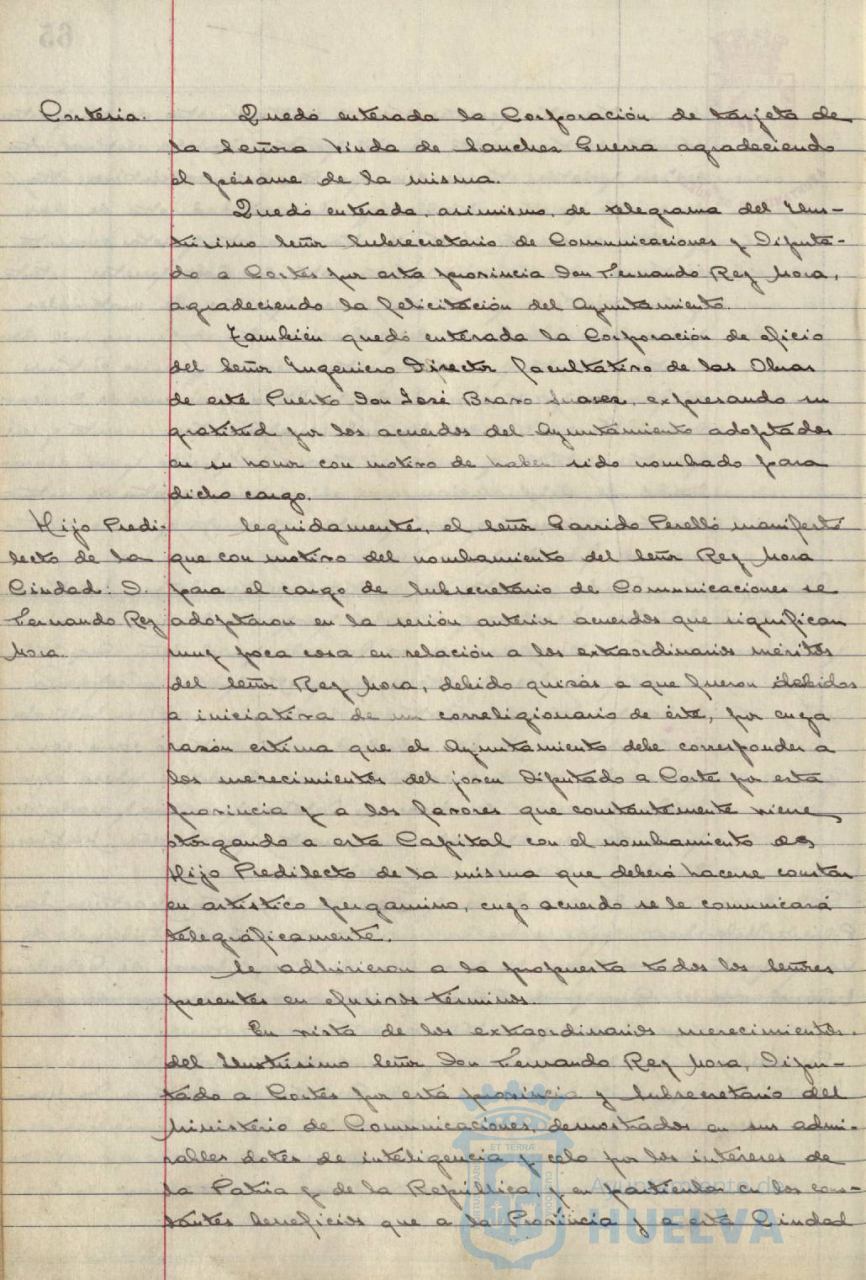 Cortesía.
Quedó enterada la Corporación de tarjeta de
la Señora Viuda de Sanchez Guerra agradeciendo
el pésame de la misma.
Quedó enterada, asimismo, de telegrama del Ilus-
trísimo Señor Subsecretario de Comunicaciones y Diputa-
do a Cortes por esta provincia Don Fernando Rey Mora,
agradeciendo la felicitación del Ayuntamiento.
También quedó enterada la Corporación de oficio
del Señor Ingeniero Director facultativo de las Obras
de este Puerto Don José Bravo Suarez, expresando su
gratitud por los acuerdos del Ayuntamiento adoptados
en su honor con motivo de haber sido nombrado para
dicho cargo.
Hijo Predi-
lecto de la
Ciudad: D.
Fernando Rey
Mora.
Seguidamente, el Señor Garrido Perelló manifestó
que con motivo del nombramiento del Señor Rey Mora
para el cargo de Subsecretario de Comunicaciones se
adoptaron en la sesión anterior acuerdos que significan
muy poca cosa en relación a los extraordinarios méritos
del Señor Rey Mora, debido quizás a que fueron debidos
a iniciativa de un correligionario de éste, por cuya
razón estima que el Ayuntamiento debe corresponder a
los merecimientos del joven Diputado a Corte por esta
provincia y a los favores que constantemente viene
otorgando a esta Capital con el nombramiento de
Hijo Predilecto de la misma que deberá hacerse constar
en artístico pergamino, cuyo acuerdo se le comunicará
telegráficamente.
Se adhirieron a la propuesta todos los Señores
presentes en efusivos términos.
En vista de los extraordinarios merecimientos
del Ilustrísimo Señor Don Fernando Rey Mora, Dipu-
tado a Cortes por esta provincia y Subsecretario del
Ministerio de Comunicaciones, demostrados en sus admi-
rables dotes de inteligencia y celo por los intereses de
la Patria y de la República, y en particular en los cons-
tantes beneficios que a la Provincia y a esta Ciudad
ET TERRÆ
Ayuntamiento de
HUELVA